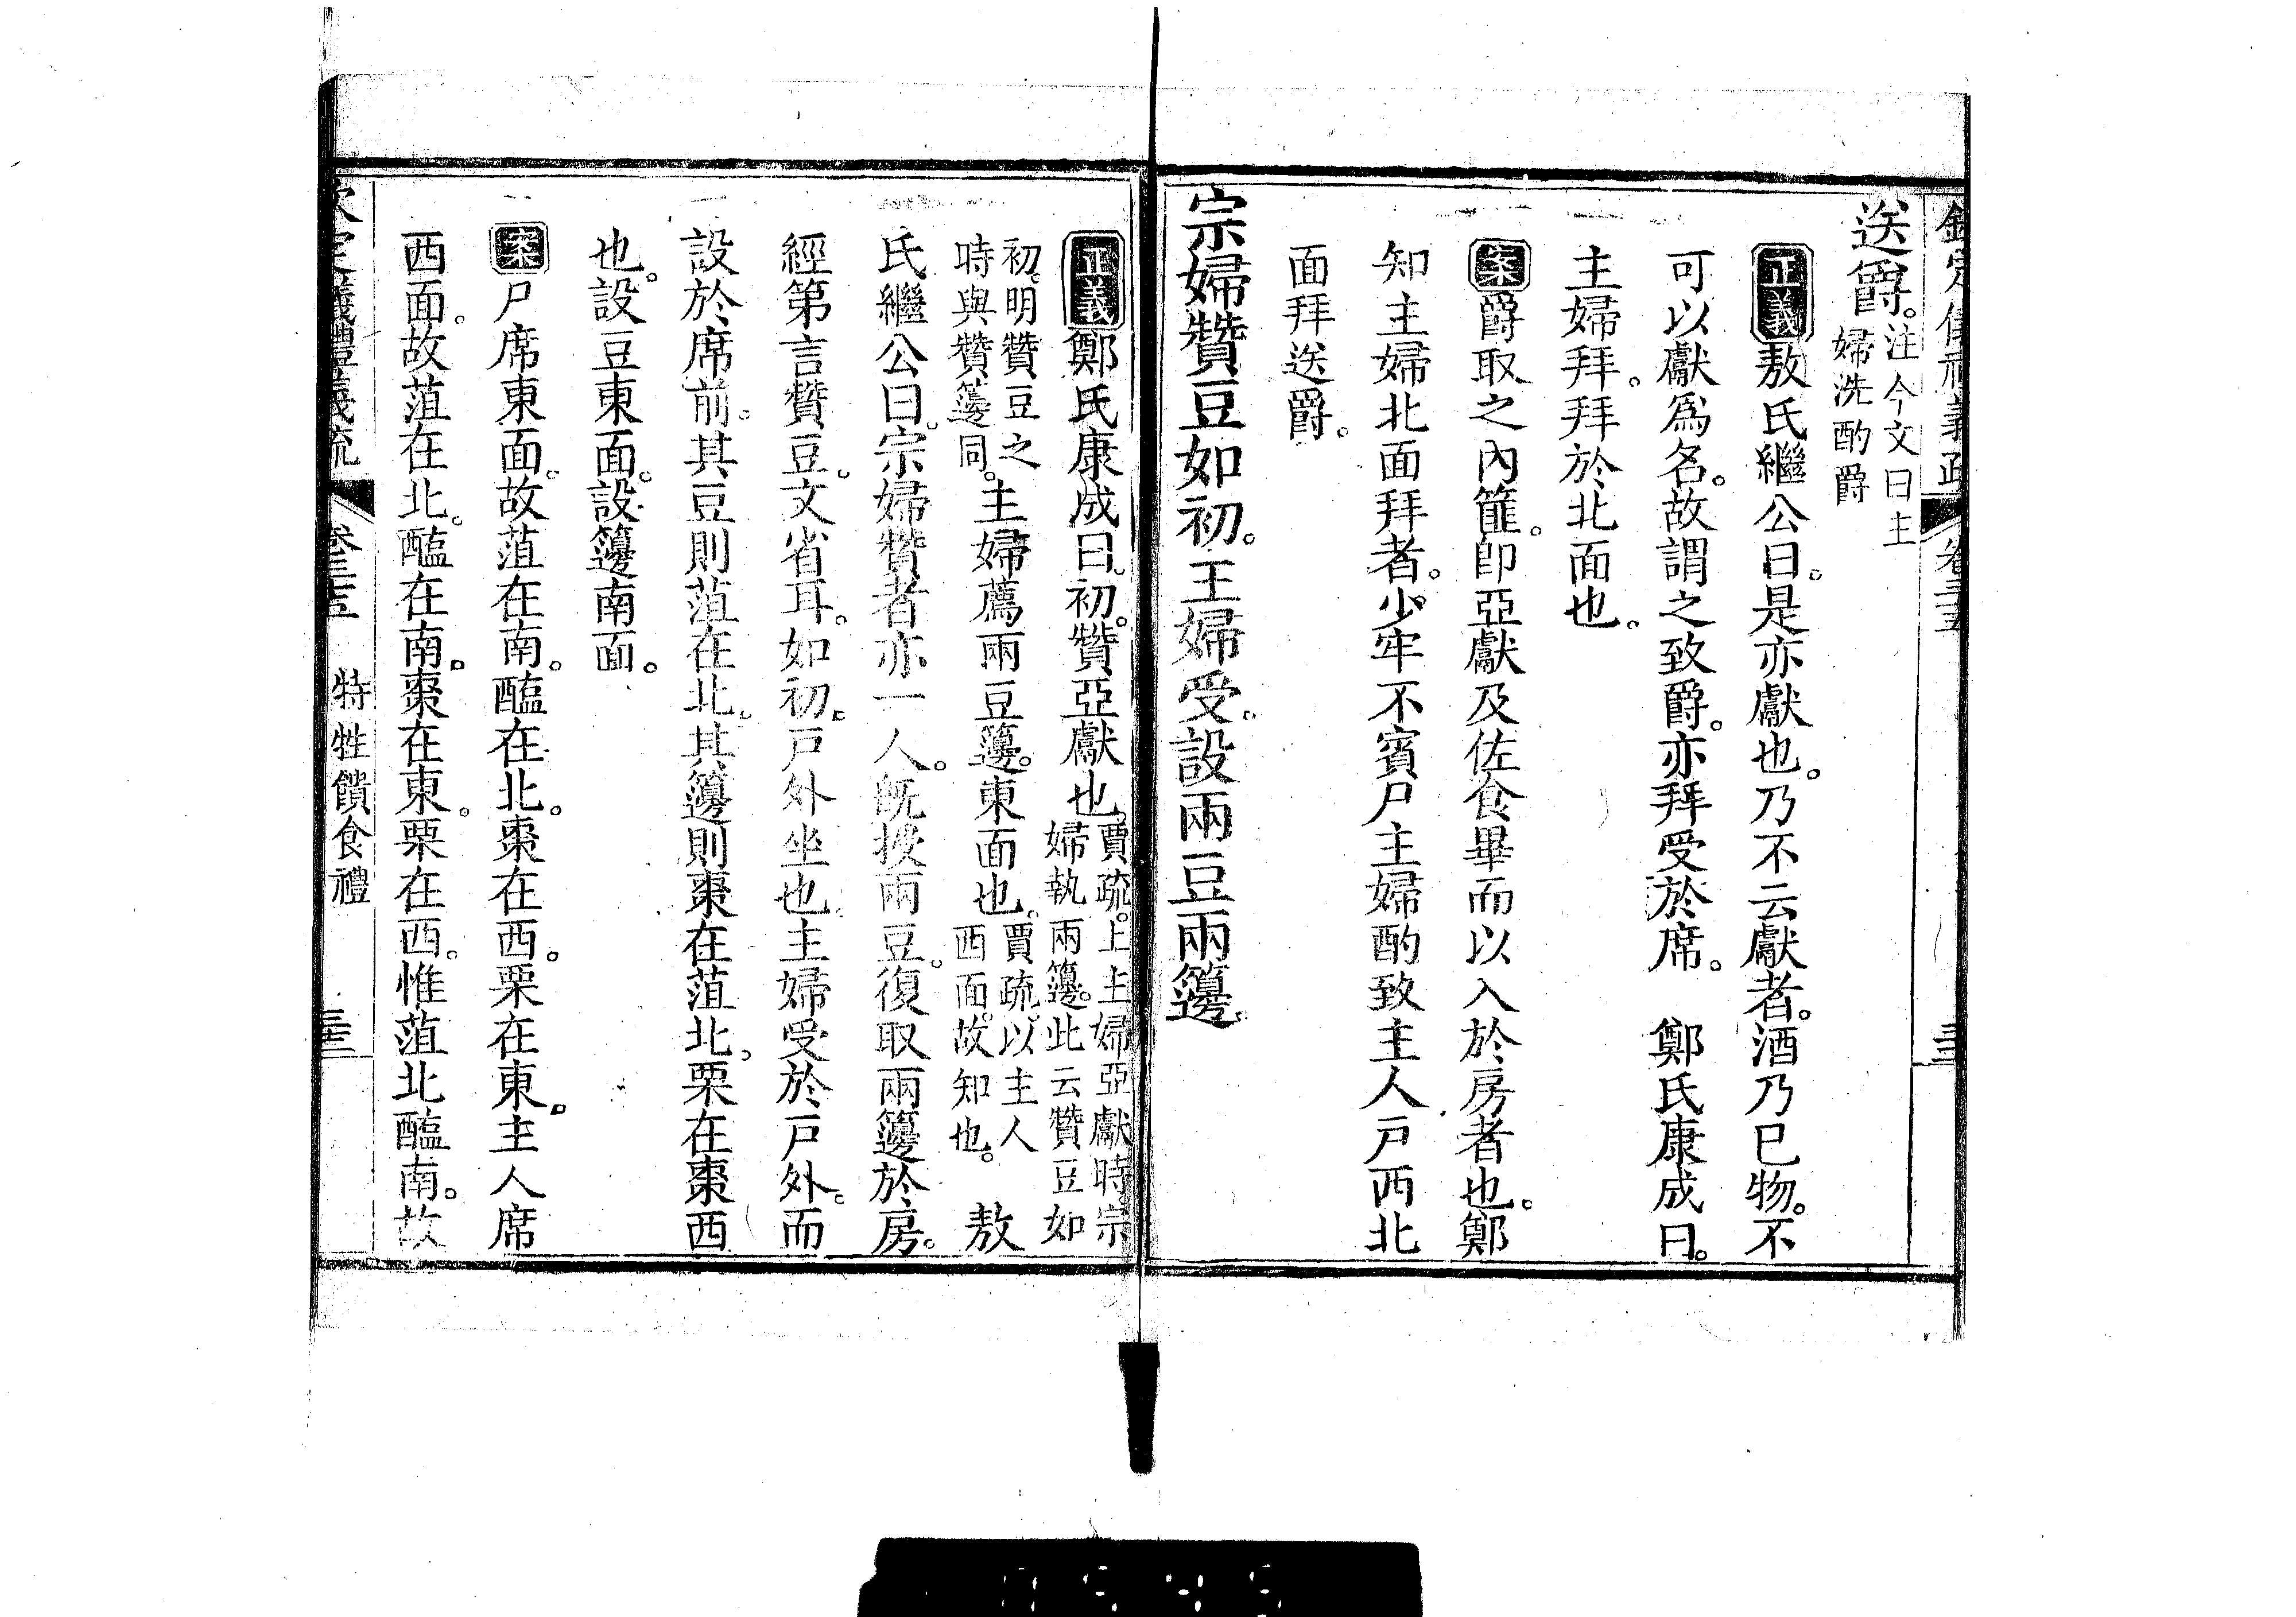 欽定儀禮義疏 卷三十五
送爵。注今文曰主
婦洗酌爵
正義敖氏繼公曰。是亦獻也。乃不云獻者。酒乃已物。不
可以獻爲名。故謂之致爵。亦拜受於席。 鄭氏康成曰。
主婦拜。拜於北面也。
案爵取之內篚。卽亞獻及佐食畢而以入於房者也。鄭
知主婦北面拜者。少牢不賓尸主婦酌致主人戶西北
面拜送爵。
宗婦贊豆如初。主婦受。設兩豆兩籩。
正義鄭氏康成曰。初。贊亞獻也。賈疏。上主婦亞獻時。宗
婦執兩籩。此云贊豆如
初。明贊豆之
時與贊籩同。主婦薦兩豆籩。東面也。賈疏。以主人
西面。故知也。 敖
氏繼公曰。宗婦贊者亦一人。旣授兩豆。復取兩籩於房。
經第言贊豆。文省耳。如初。戶外坐也。主婦受於戶外。而
設於席前。其豆則菹在北。其籩則棗在菹北。栗在棗西
也。設豆東面。設籩南面。
案尸席東面。故菹在南。醢在北。棗在西。栗在東。主人席
西面。故菹在北。醢在南。棗在東。栗在西。惟菹北醢南。故
欽定儀禮義疏 卷三十五 特牲饋食禮